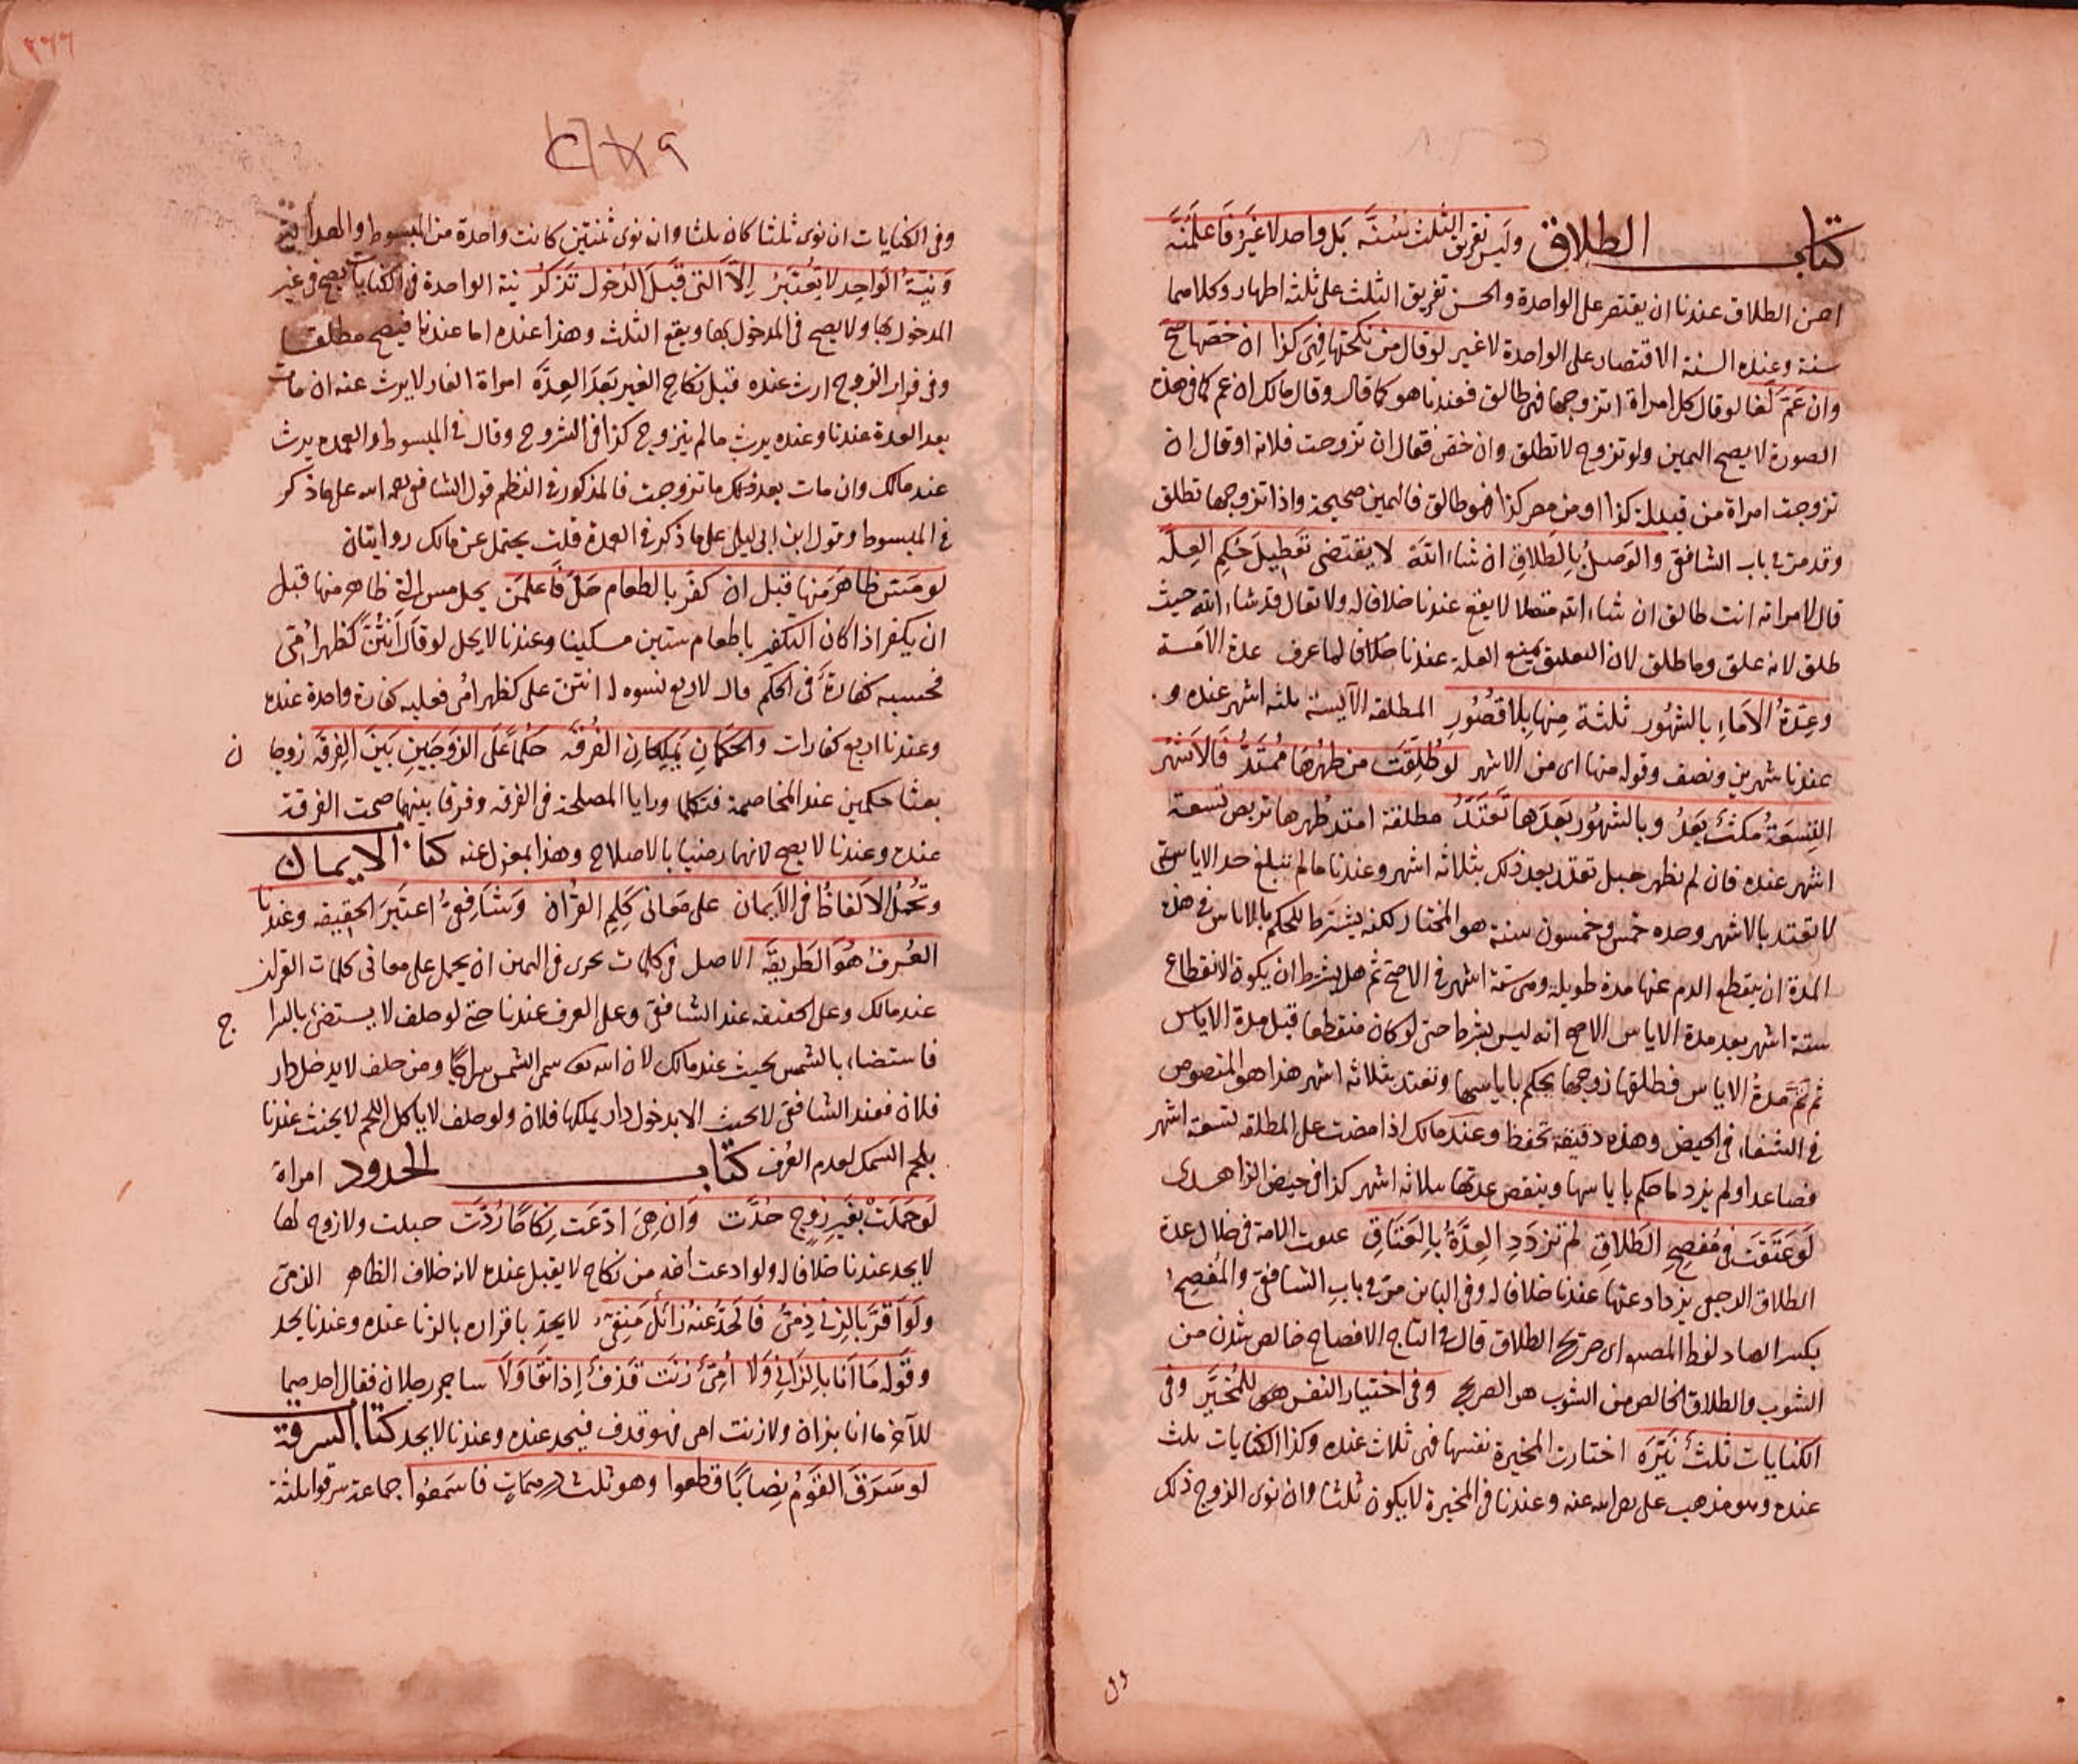 كتاب الطلاق وليس تفريق الثلث بسنّة بل واحد لا غير فاعلمنّه
احسن الطلاق عندنا ان يقتصر على الواحدة والحسن تفريق الثلث على ثلثة اطهار وكلاهما
سنة وعنده السنة الاقتصار على الواحدة لا غير لو قال من نكحتها فهي كذا ان خصّها صحّ
وان عمّ لغا لو قال كل امراة اتزوجها فهي طالق فعندنا هو كما قال وقال مالك ان عم كما في هذه
الصورة لا يصح اليمين ولو تزوج لا تطلق وان خص فقال ان تزوجت فلانة او قال ان
تزوجت امراة من قبيلة كذا او من مصر كذا فهو طالق فاليمين صحيحة واذا تزوجها تطلق
وقد مرّ في باب الشافعي والوصل بالطلاق ان شاء الله لا يقتضي تعطيل حكم العلّه
قال لامراته انت طالق ان شاء الله متصلا لا يقع عندنا خلافا له ولا يقال قد شاء الله حيث
طلق لانه علق وما طلق لان التعليق يمنع العلة عندنا خلافا لما عرف عدة الامة
وعدة الاماء بالشهور ثلثة منها بلا قصور المطلقه الآيسة ثلثه اشهر عنده و
عندنا شهرين ونصف وقوله منها اى من الاشهر لو طلّقت من طهرها ممتدّ فالاشهر
التسعة مكث بعد وبالشهور بعدها تعتدّ مطلقة امتد طهرها تربص تسعة
اشهر عنده فان لم يظهر حبل تعتد بعد ذلك بثلاثه اشهر وعندنا ما لم تبلغ حد الاياس
لا تعتد بالاشهر وحده خمس وخمسون سنة هو المختار لكنه يشترط للحكم بالاياس في هذه
المدة ان ينقطع الدم عنها مدة طويلة وهي ستة اشهر في الاصح ثم هل يشترط ان يكون الانقطاع
ستة اشهر بعد مدة الاياس الاصح انه ليس بشرط حتى لو كان منقطعا قبل مدة الاياس
ثم تمّ مدة الاياس فطلقها زوجها يحكم باياسها وتعتد بثلاثه اشهر هذا هو المنصوص
في الشفاء في الحيض وهذه دقيقة تحفظ وعند مالك اذا مضت على المطلقه تسعة اشهر
فصاعدا ولم يزد دما حكم باياسها وينقض عدتها بثلاثه اشهر كذا في حيض الزاهدى
لو عتقت في مفصح الطلاق لم تزدد العدّة بالعتاق عتقت الامة في خلال عدة
الطلاق الرجعي يزداد عدتها عندنا خلافا له وفي الباين مرّ في باب الشافعي والمفصح
بكسر الصاد لفظ المصنف اى صريح الطلاق قال في التاج الافصاح خالص شدن من
الشوب والطلاق الخالص من الشوب هو الصريح وفي اختيار النفس هو للمخيّر وفي
الكنايات ثلث نيّره اختارت المخيرة نفسها فهي ثلاث عنده وكذا الكنايات ثلث
عنده وهو مذهب علي رضى الله عنه وعندنا في المخيرة لا يكون ثلثا وان نوى الزوج ذلك
وفي الكنايات ان نوى ثلثا كان ثلثا وان نوى ثنتين كانت واحدة من المبسوط والهداية
ونيّة الواحد لا تعتبر الّا التي قبل الدخول تذكر نية الواحدة في الكنايات يصح في غير
المدخول بها ولا يصح في المدخول بها ويقع الثلث وهذا عنده اما عندنا فيصح مطلقا
وفي فرار الزوج ارث عنده قبل نكاح الغير بعد العدّه امراة الفار لا يرث عنه ان مات
بعد العدة عندنا وعنده يرث ما لم يتزوج كذا في الشروح وقال في المبسوط والعمده يرث
عند مالك وان مات بعد ذلك ما تزوجت فالمذكور في النظم قول الشافعي رحمه الله على ما ذكر
في المبسوط وقول ابن ابي ليلى على ما ذكر في العمدة قلت يحتمل عن مالك روايتان
لو مسّ من ظاهر منها قبل ان كفّر بالطعام حلّ فاعلمن يحل مس التي ظاهر منها قبل
ان يكفر اذا كان التكفير باطعام ستين مسكينا وعندنا لا يحل لو قال انتنّ كظهر امّي
فحسبه كفارة في الحكم قال لاربع نسوه له انتن علي كظهر امي فعليه كفارة واحدة عنده
وعندنا اربع كفارات والحكمان يملكان الفرقه حكما على الزوجين بين الفرقه زوجا ن
بعثا حكمين عند المخاصمة فتكلما ورايا المصلحة في الفرقه وفرقا بينهما صحت الفرقة
عنده وعندنا لا يصح لانهما رضيا بالاصلاح وهذا بمعزل عنه كتاب الايمان
وتحمل الالفاظ في الايمان على معاني كلم القرآن وشافعي اعتبر الحقيقه وعندنا
العرف هو الطريقه الاصل في كلمات تجرى في اليمين ان يحمل على معاني كلمات القران
عند مالك وعلى الحقيقه عند الشافعي وعلى العرف عندنا حتى لو حلف لا يستضئ بالسرا ج
فاستضاء بالشمس يحنث عند مالك لان الله تعالى سمى الشمس سراجا ومن حلف لا يدخل دار
فلان فعند الشافعي لا يحنث الا بدخول دار يملكها فلان ولو حلف لا ياكل اللحم لا يحنث عندنا
بلحم السمك لعدم العرف كتاب الحدود امراة
لو حملت بغير زوج حدّت وان هي ادّعت نكاحا ردّت حبلت ولا زوج لها
لا يحد عندنا خلافا له ولو ادعت انه من نكاح لا يقبل عنده لانه خلاف الظاهر الذمي
ولو اقرّ بالزنى ذمي فالحدّ عنه زائل منفي لا يحدّ باقراره بالزنا عنده وعندنا يحد
وقوله ما انا بالزاني ولا امّي زنت قذف اذا تقاولا ساجر رجلان فقال احدهما
للآخر ما انا بزان ولا زنت امى فهو قذف فيحد عنده وعندنا لا يحد كتاب السرقة
لو سرق القوم نصابا قطعوا وهو ثلث درهمات فاسمعوا جماعة سرقوا ثلثة